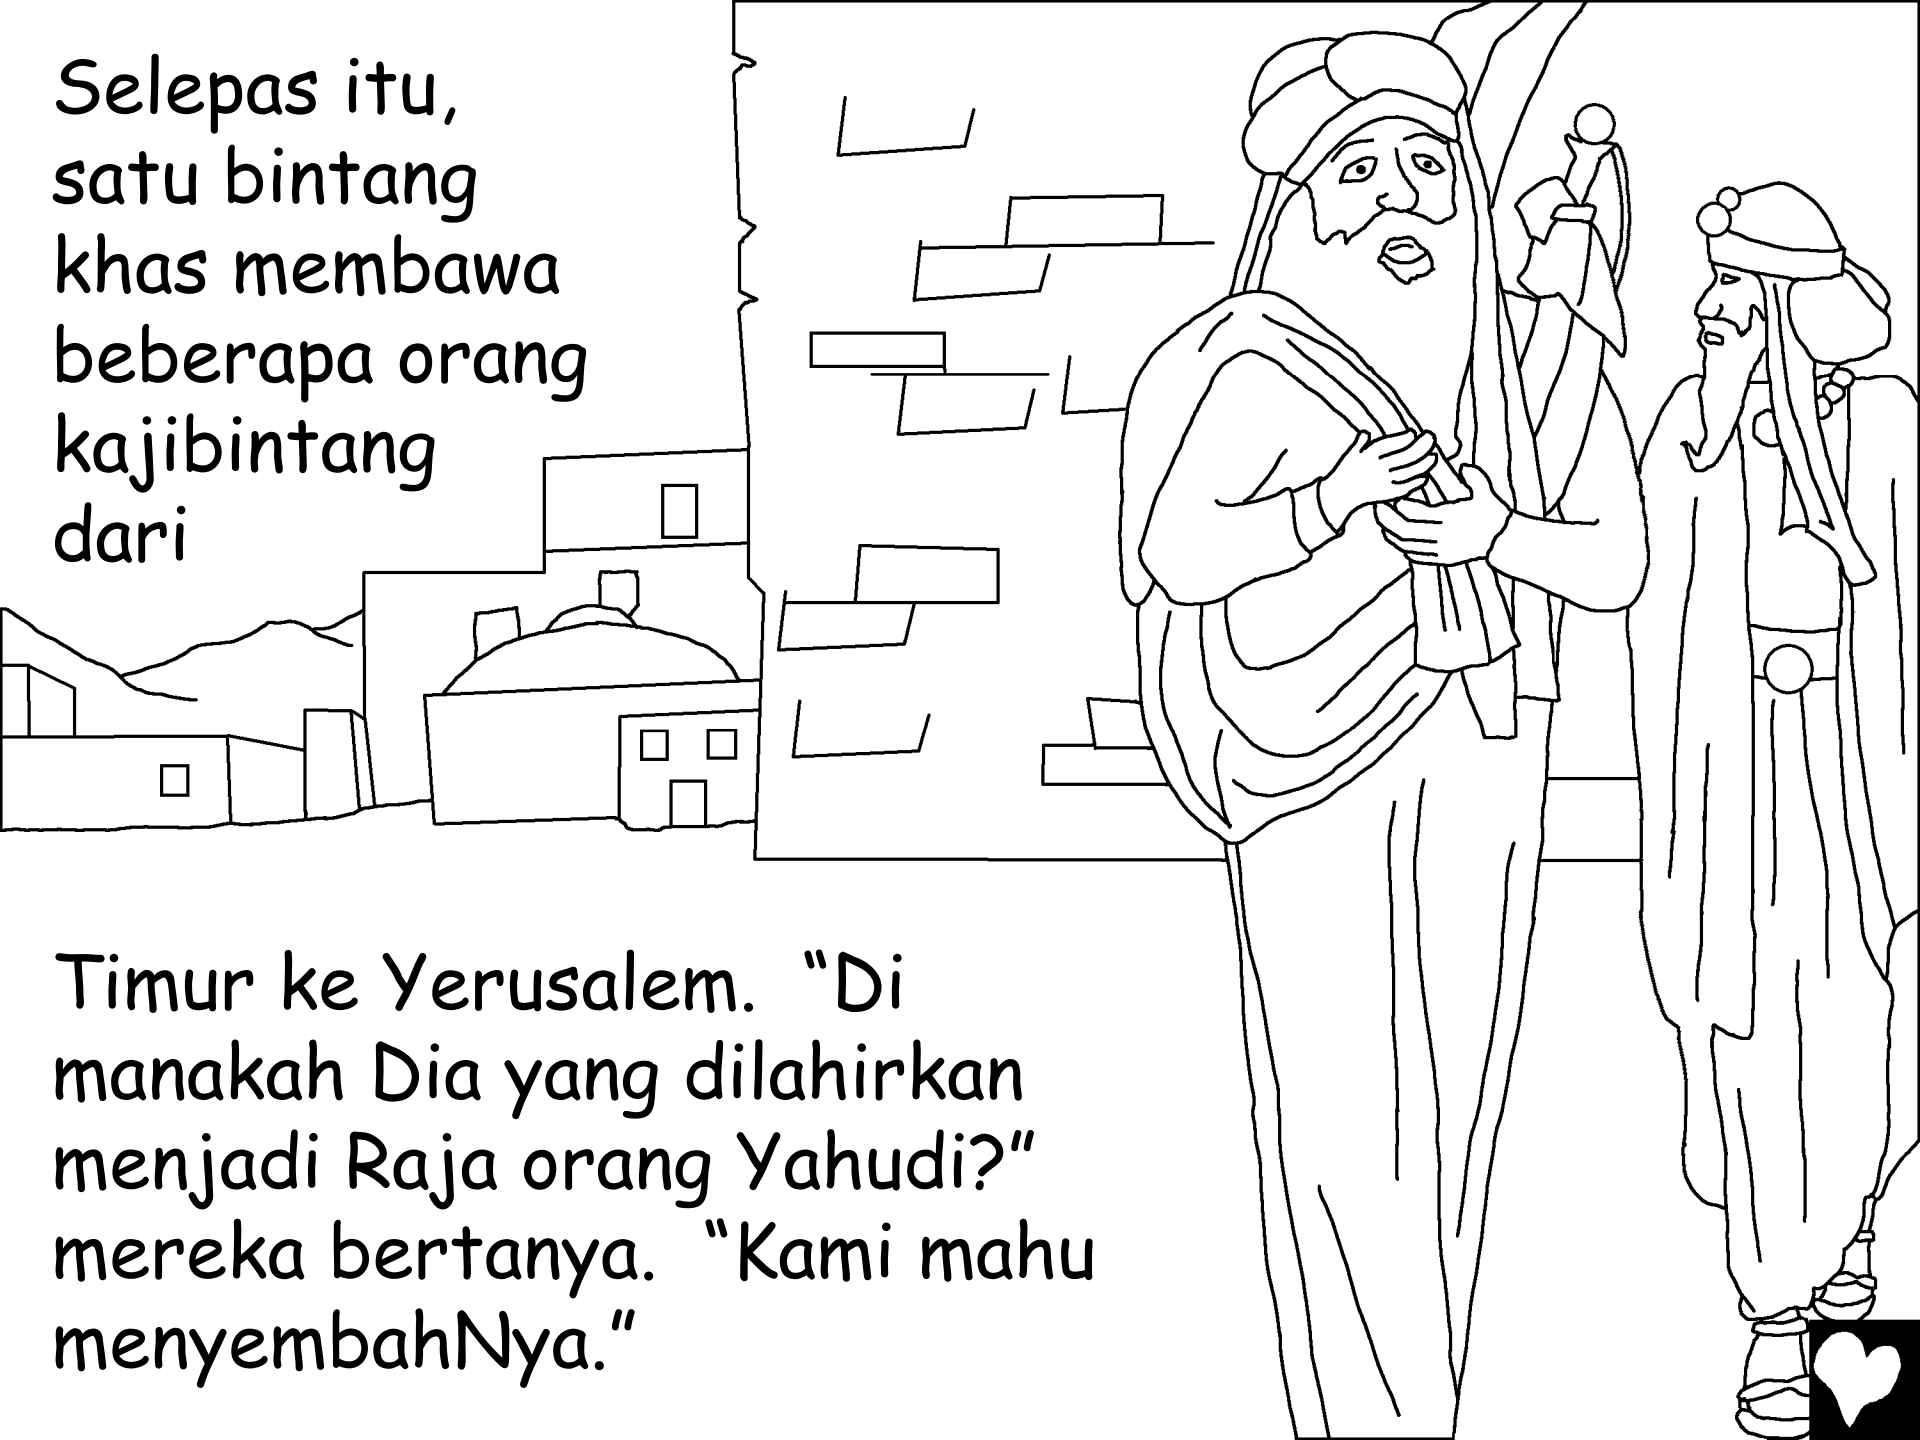 Selepas itu,
satu bintang
khas membawa
beberapa orang
kajibintang
dari
Timur ke Yerusalem.  “Di
manakah Dia yang dilahirkan
menjadi Raja orang Yahudi?”
mereka bertanya.  “Kami mahu
menyembahNya.”